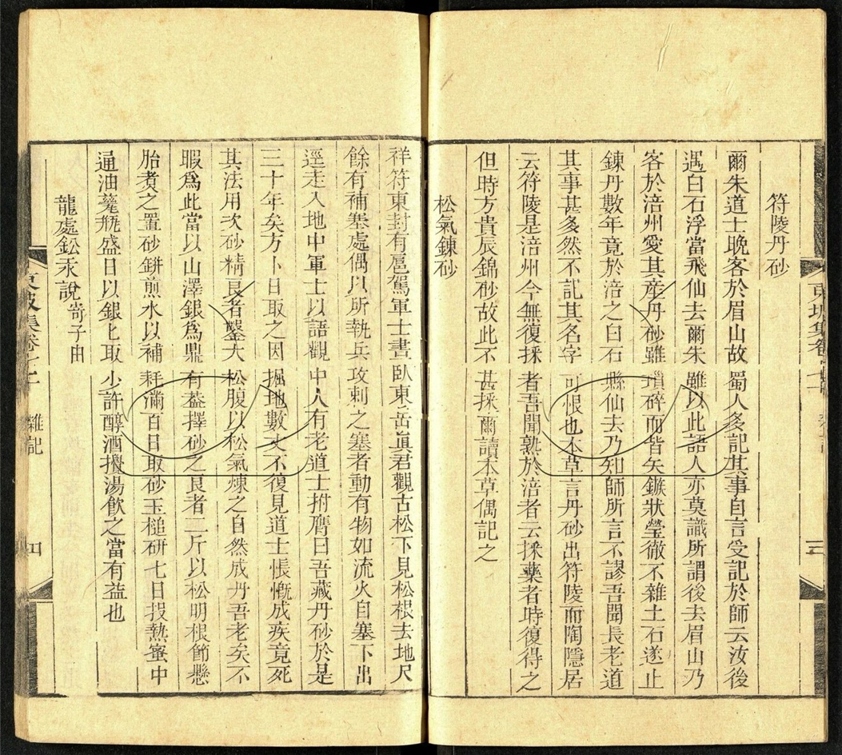 符陵丹砂
爾朱道士晚客於眉山故蜀人多記其事自言受記於師云汝後
遇白石浮當飛仙去爾朱雖以此語人亦莫識所謂後去眉山乃
客於涪州愛其產丹砂雖瑣碎而皆矢鏃狀瑩徹不雜土石遂止
鍊丹數年竟於涪之白石縣仙去乃知師所言不謬吾聞長老道
其事甚多然不記其名字可恨也本草言丹砂出符陵而陶隱居
云符陵是涪州今無復採者吾聞熟於涪者云採藥者時復得之
但時方貴辰錦砂故此不甚採爾讀本草偶記之
松氣鍊砂
祥符東封有扈駕軍士晝臥東岳真君觀古松下見松根去地尺
餘有補塞處偶以所執兵攻刺之塞者動有物如流火自塞下出
逕走入地中軍士以語觀中人有老道士拊膺曰吾藏丹砂於是
三十年矣方卜日取之因掘地數丈不復見道士悵慨成疾竟死
其法用次砂精良者鑿大松腹以松氣煉之自然成丹吾老矣不
暇為此當以山澤銀為鼎有蓋擇砂之良者二斤以松明根節懸
胎煮之置砂缾煎水以補耗滿百日取砂玉槌研七日投熱蜜中
通油瓷瓶盛日以銀匕取少許醇酒攪湯飲之當有益也
龍虎鉛汞說寄子由
東坡集卷
雜記